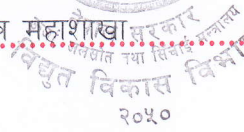 महाशाखा
सरकार
जलस्रोत तथा सिंचाई मन्त्रालय
विद्युत विकास विभाग
२०५०